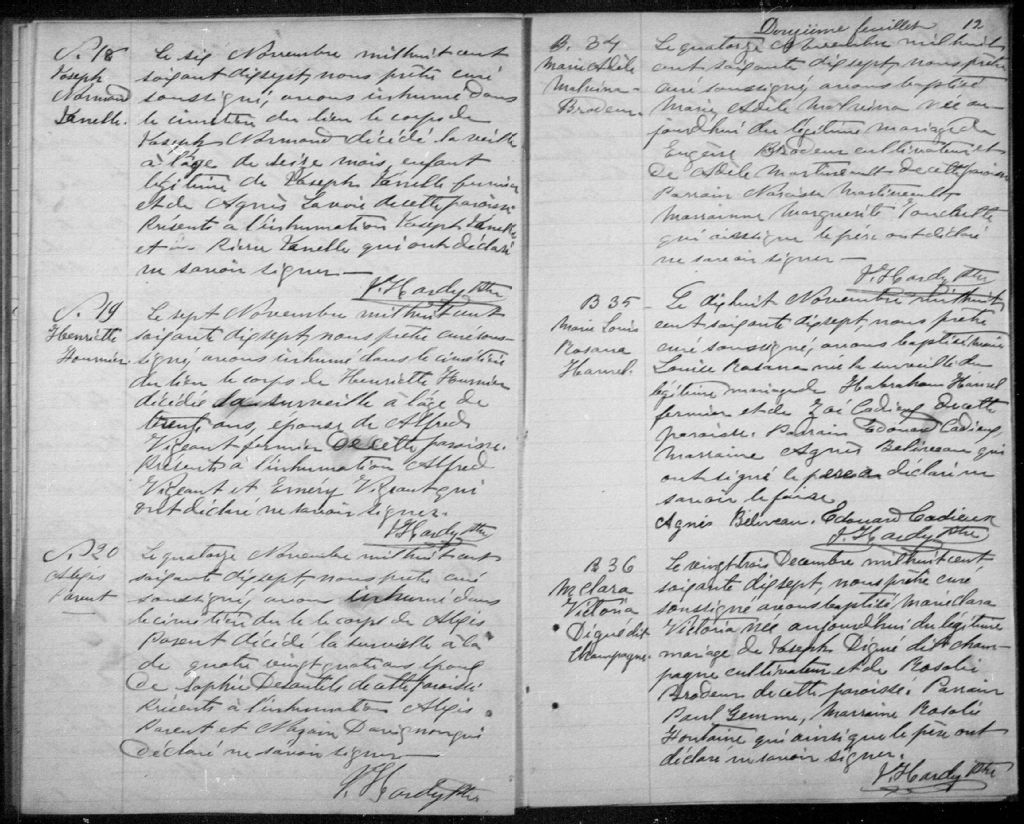 S. 18
Joseph
Normand
Vanelle.
Le six Novembre mil huit cent
soixante dix sept, nous prêtre curé
soussigné, avons inhumé dans
le cimetière du lieu le corps de
Joseph Normand décédé la veille
à l'âge de seize mois, enfant
légitime de Joseph Vanelle fermier
et de Agnès Lavoie de cette paroisse.
Présents à l'inhumation Joseph Vanelle
et Pierre Vanelle qui ont déclaré
ne savoir signer —
J. Hardy Ptre
S. 19
Henriette
Fournier
Le sept Novembre mil huit cent
soixante dix sept, nous prêtre curé sous-
signé, avons inhumé dans le cimetière
du lieu le corps de Henriette Fournier
décédée la surveille à l'âge de
ans, épouse de Alfred
Vigeant fermier de cette paroisse.
Présents à l'inhumation Alfred
Vigeant et Eméry Vigeant qui
ont déclaré ne savoir signer.
J. Hardy Ptre
S. 20
Alexis
Parent
Le quatorze Novembre mil huit cent
soixante dix sept, nous prêtre curé
soussigné, avons inhumé dans
le cimetière du le corps de Alexis
Parent décédé la surveille à la
de quatre vingt quatre ans époux
de Sophie Desautels de cette paroisse
Présents à l'inhumation Alexis
Parent et Davignon qui
déclaré ne savoir signer —
J. Hardy Ptre
Douzième feuillet 12
B. 34
Marie Adèle
Malvina
Brodeur
Le quatorze Novembre mil huit
cent soixante dix sept, nous prêtre
curé soussigné, avons baptisé
Marie Adèle Malvina née au-
jourd'hui du légitime mariage de
Eugène Brodeur cultivateur et
de Adèle Martineault de cette paroisse
Parrain Narcisse Martineault,
Marrainne Marguerite
qui ainsi que le père ont déclaré
ne savoir signer —
J. Hardy Ptre
B 35 —
Marie Louis
Rosana
Hamel.
Le dix huit Novembre mil huit
cent soixante dix sept, nous prêtre
curé soussigné, avons baptisé Marie
Louise Rosana née la surveille du
légitime mariage de Habraham Hamel
fermier et de Zoé Cadieux de cette
paroisse. Parrain Edouard Cadieux,
Marraine Agnès Beliveau qui
ont signé le père a déclaré ne
savoir le faire.
Agnès Béliveau. Edouard Cadieux
J. Hardy Ptre
B 36
M Clara
Victoria
Digué dit
Champagne.
Le vingt trois Decembre mil huit cent,
soixante dix sept, nous prêtre curé
soussigné avons baptisé, Marie Clara
Victoria née aujourd'hui du légitime
mariage de Joseph Digué dit Cham-
pagne cultivateur et de Rosalie
Brodeur de cette paroisse. Parrain
Paul Gemme, Marraine Rosalie
Fontaine qui ainsi que le père ont
déclaré ne savoir signer.
J. Hardy Ptre